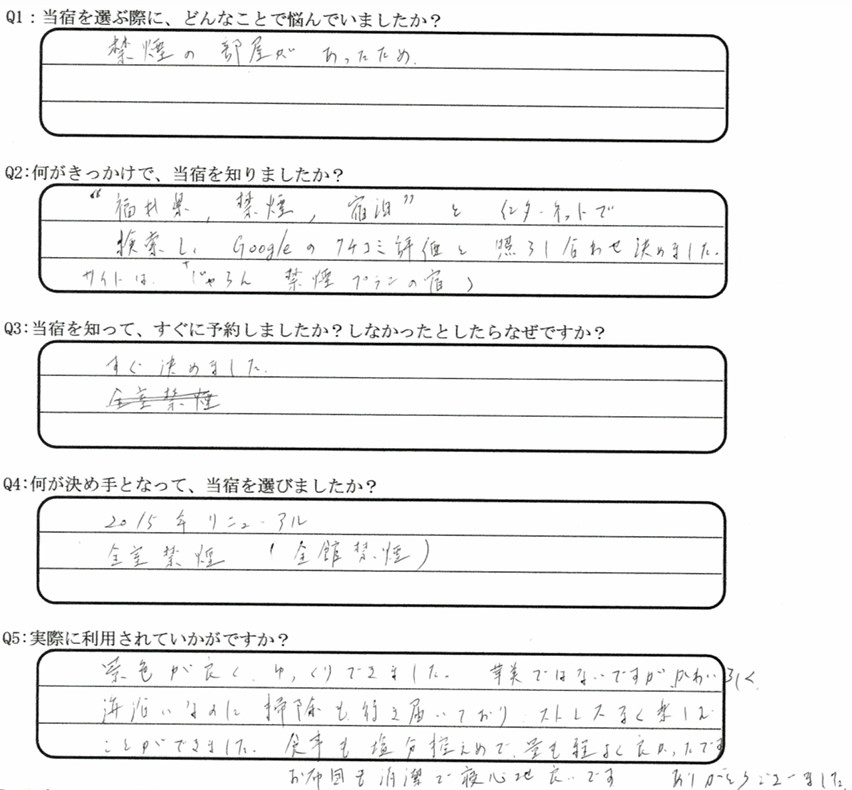 Q1：当宿を選ぶ際に、どんなことで悩んでいましたか？
禁煙の部屋があったため.
Q2：何がきっかけで、当宿を知りましたか？
"福井県, 禁煙, 宿泊" と インターネットで
検索し、Googleの クチコミ評価と 照らし合わせ決めました.
サイトは. "じゃらん 禁煙プランの宿"
Q3：当宿を知って、すぐに予約しましたか？しなかったとしたらなぜですか？
すぐ決めました.
全室禁煙
Q4：何が決め手となって、当宿を選びましたか？
2015年リニューアル
全室禁煙 (全館禁煙)
Q5：実際に利用されていかがですか？
景色が良く、ゆっくりできました. 華美ではないですが、かわいらしく
海沿いなのに 掃除も行き届いており ストレスなく楽しむ
ことができました. 食事も塩分控えめで、量も程よく良かったです
お布団も清潔で寝心地良いです ありがとうございました.